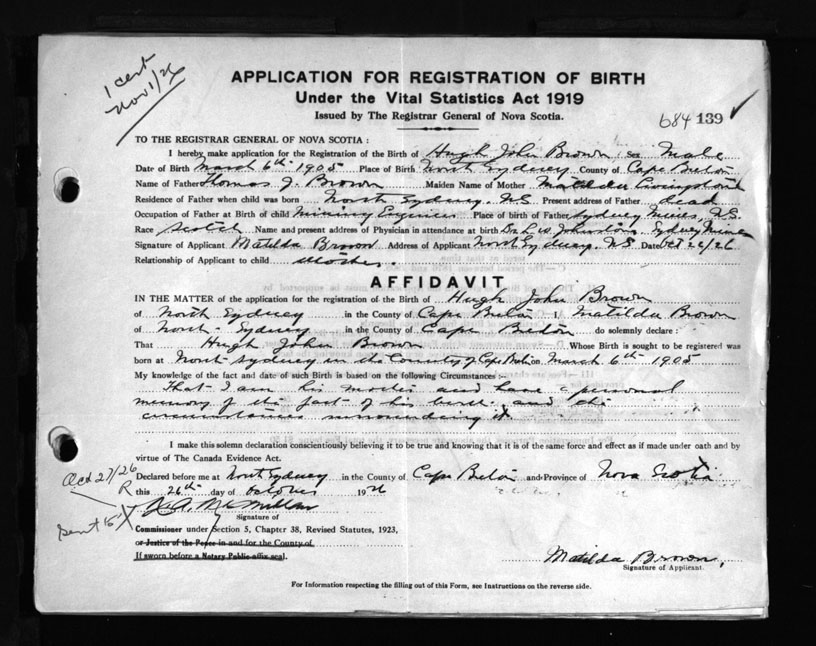 1 cert
Nov 1/26
APPLICATION FOR REGISTRATION OF BIRTH
Under the Vital Statistics Act 1919
Issued by The Registrar General of Nova Scotia.
684 139
TO THE REGISTRAR GENERAL OF NOVA SCOTIA:
I hereby make application for the Registration of the Birth of Hugh John Brown Sex Male
Date of Birth March 6th 1905 Place of Birth North Sydney County of Cape Breton
Name of Father Thomas J. Brown Maiden Name of Mother Matilda Livingstone
Residence of Father when child was born North Sydney. N.S. Present address of Father dead
Occupation of Father at Birth of child Mining Engineer Place of birth of Father Sydney Mines, N.S.
Race Scotch Name and present address of Physician in attendance at birth Dr. L. W. Johnstone. Sydney Mines
Signature of Applicant Matilda Brown Address of Applicant North Sydney. N.S. Date Oct 26/26
Relationship of Applicant to child Mother.
AFFIDAVIT
IN THE MATTER of the application for the registration of the Birth of Hugh John Brown
of North Sydney in the County of Cape Breton I, Matilda Brown
of North Sydney in the County of Cape Breton do solemnly declare:
That Hugh John Brown Whose Birth is sought to be registered was
born at North Sydney in the County of Cape Breton March 6th 1905
My knowledge of the fact and date of such Birth is based on the following Circumstances:-
That I am his mother and have a personal
memory of the fact of his birth and the
circumstances surrounding it
I make this solemn declaration conscientiously believing it to be true and knowing that it is of the same force and effect as if made under oath and by
virtue of The Canada Evidence Act.
Oct 27/26
R
Declared before me at North Sydney in the County of Cape Breton and Province of Nova Scotia
this 26th day of October 1926
McMillan
Sent
Signature of
Commissioner under Section 5, Chapter 38, Revised Statutes, 1923,
or Justice of the Peace in and for the County of
If sworn before a Notary Public affix seal.
Matilda Brown,
Signature of Applicant.
For Information respecting the filling out of this Form, see Instructions on the reverse side.